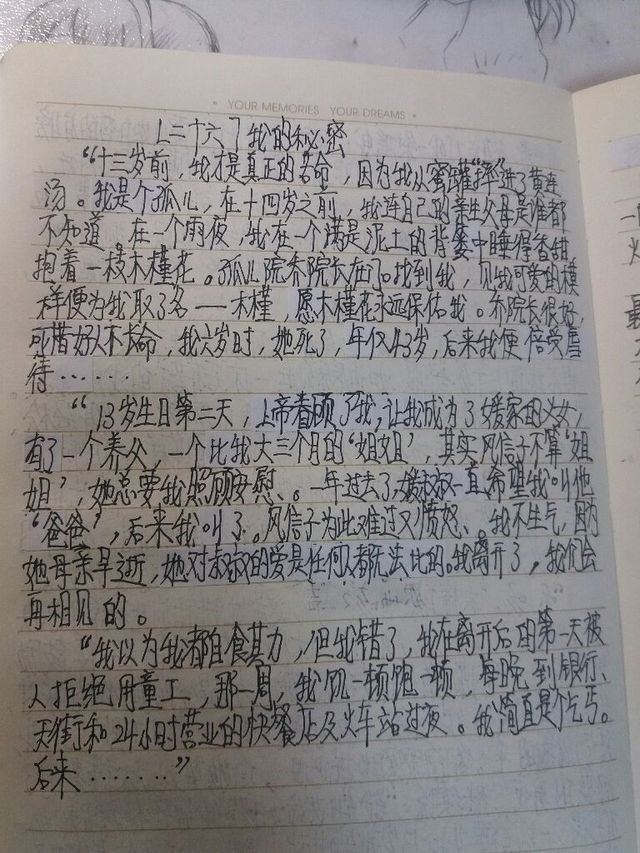 YOUR MEMORIES YOUR DREAMS
二十六 我的秘密
“十三岁前，我才是真正的苦命，因为我从蜜罐“摔”进了黄连
汤。我是个孤儿，在十四岁之前，我连自己的亲生父母是谁都
不知道。在一个雨夜，我在一个满是泥土的背篓中睡得香甜
抱着一枝木槿花。孤儿院乔院长在门口找到我，见我可爱的模
样便为我取了名——木槿，愿木槿花永远保佑我。乔院长很好，
可惜好人不长命，我六岁时，她死了，年仅43岁，后来我便倍受虐
待……
“13岁生日第二天，上帝眷顾了我，让我成为了媛家的义女，
有了一个养父，一个比我大三个月的‘姐姐’，其实风信子不算‘姐
姐’，她总要我照顾安慰、。一年过去了，媛叔叔一直希望我叫他
“爸爸”，后来我叫了。风信子为此难过又愤怒、。我不生气，因为
她母亲早逝，她对叔叔的爱是任何人都无法比的。我离开了，我们会
再相见的。
“我以为我都自食其力，但我错了，我在离开后的第一天被
人拒绝用童工，那一周，我饥一顿饱一顿，每晚到银行、
天街和24小时营业的快餐店及火车站过夜。我简直是个乞丐。
后来……”